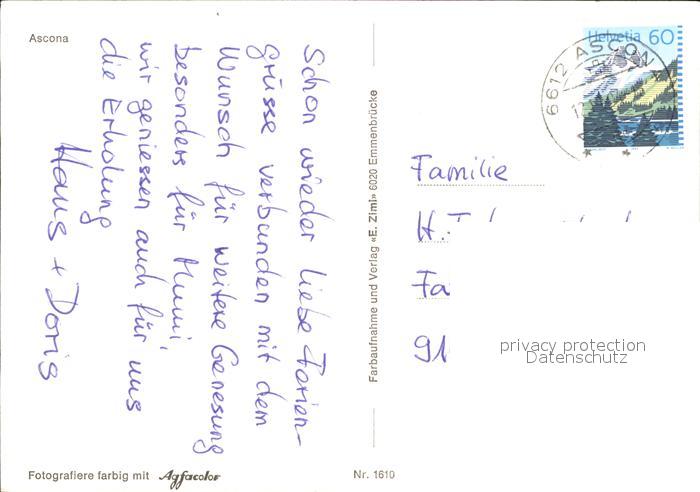 Ascona
Schon wieder liebe Ferien-
grüsse verbunden mit dem
Wunsch für weitere Genesung
besonders für Mumi,
wir geniessen auch für uns
die Erholung
Hans + Doris
Farbaufnahme und Verlag «E. Ziml» 6020 Emmenbrücke
Helvetia 60
6612 ASCONA
Familie
H. 
Fa
91
privacy protection
Datenschutz
Fotografiere farbig mit Agfacolor
Nr. 1610